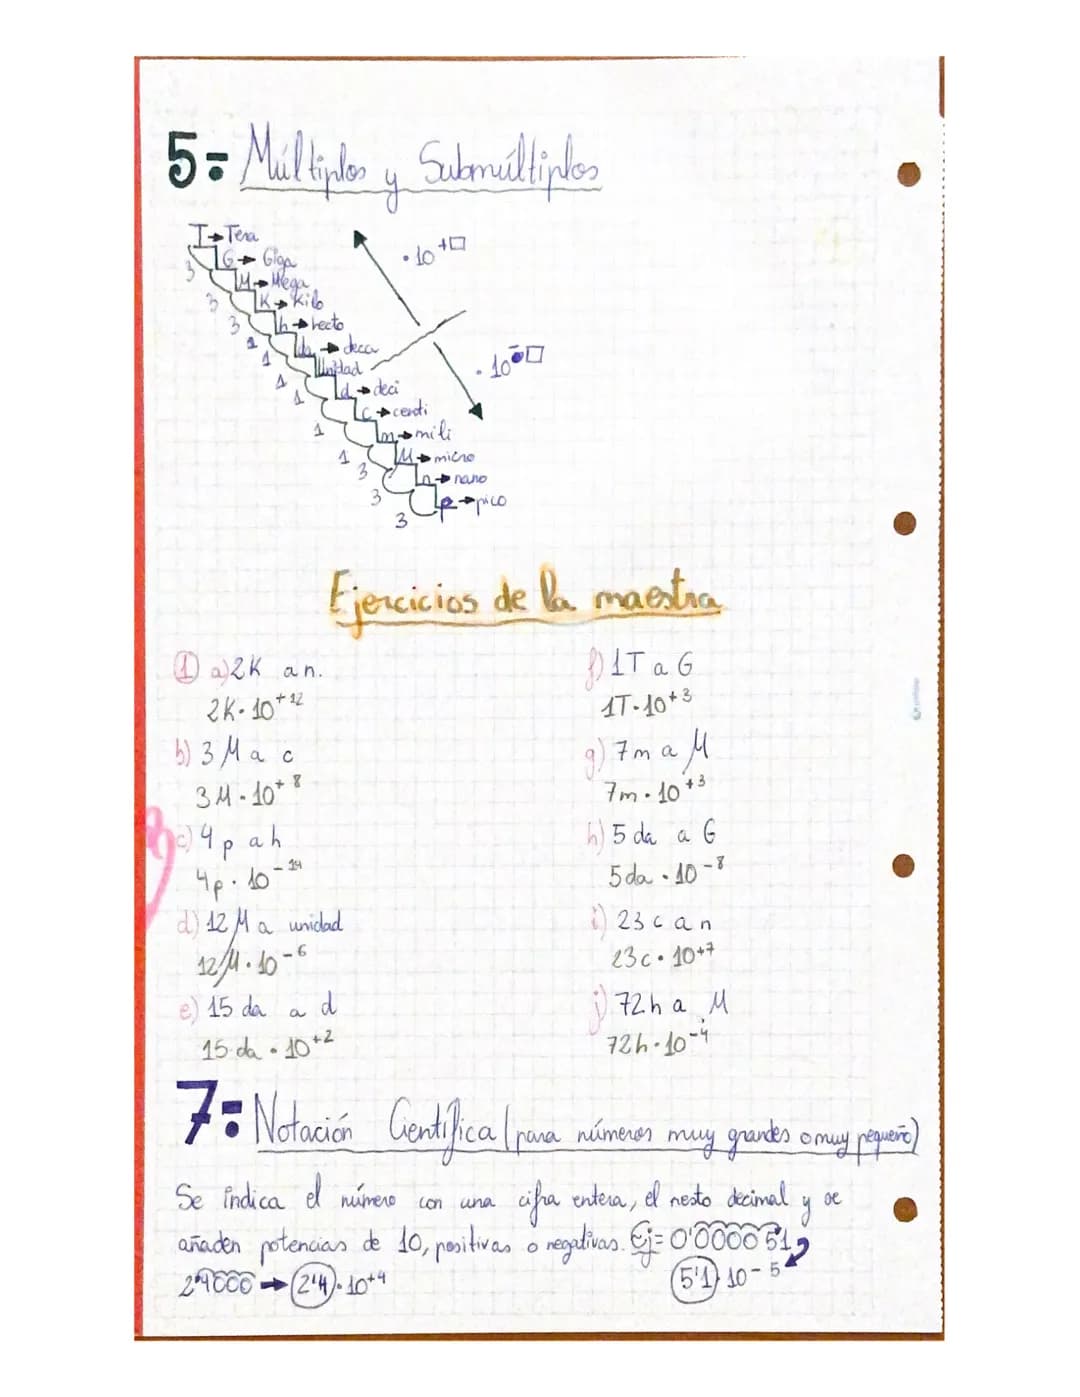 5= Múltiplos y Submúltiplos
T → Tera
3 G → Giga
3 M → Mega
3 K → Kilo
1 h → hecto
1 da → deca
1 Unidad
1 d → deci
1 c → centi
1 m → mili
3 M → micro
3 n → nano
3 p → pico
· 10 +□
· 10 -□
Ejercicios de la maestra
① a) 2K a n.
2K · 10⁺¹²
b) 3 M a c
3M · 10⁺⁸
c) 4 p a h
4p · 10⁻¹⁴
d) 12 M a unidad
12 M · 10⁻⁶
e) 15 da a d
15 da · 10⁺²
f) 1T a G
1T · 10⁺³
g) 7m a M
7m · 10⁺³
h) 5 da a G
5da · 10⁻⁸
i) 23 c a n
23c · 10⁺⁷
j) 72h a M
72h · 10⁻⁴
7= Notación Científica (para números muy grandes o muy pequeño)
Se indica el número con una cifra entera, el resto decimal y se
añaden potencias de 10, positivas o negativas. Ej= 0'000051
24000 → 2'4 · 10⁺⁴ 5'1 · 10⁻⁵